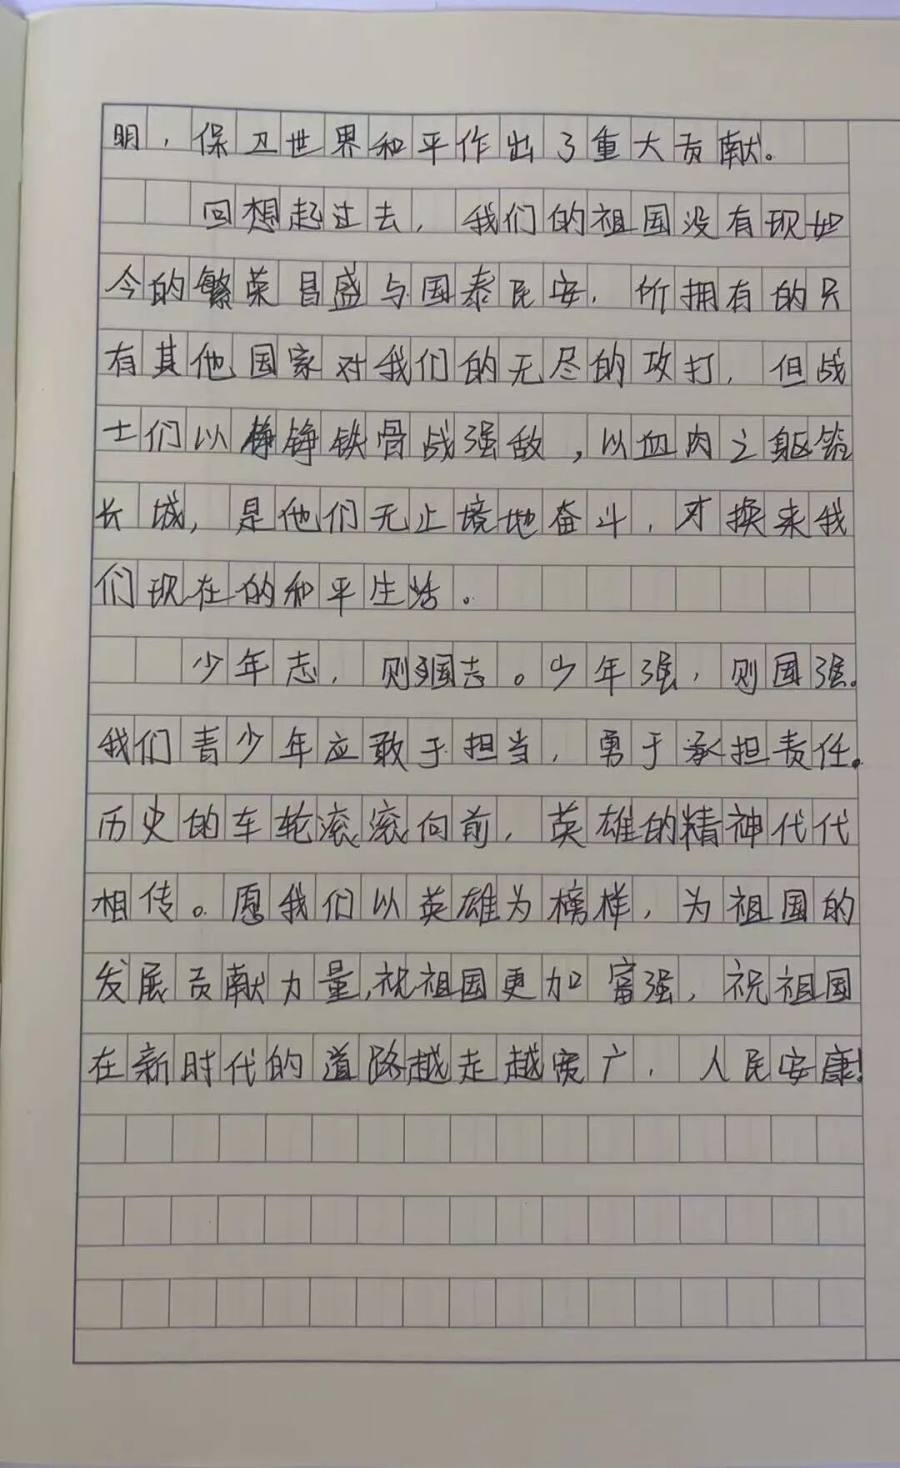 明，保卫世界和平作出了重大贡献。
回想起过去，我们的祖国没有现如
今的繁荣昌盛与国泰民安，价拥有的只
有其他国家对我们的无尽的攻打，但战
士们以铮铮铁骨战强敌，以血肉之躯筑
长城，是他们无止境地奋斗，才换来我
们现在的和平生活。
少年志，则国志。少年强，则国强。
我们青少年应敢于担当，勇于承担责任。
历史的车轮滚滚向前，英雄的精神代代
相传。愿我们以英雄为榜样，为祖国的
发展贡献力量，祝祖国更加富强，祝祖国
在新时代的道路越走越宽广，人民安康！